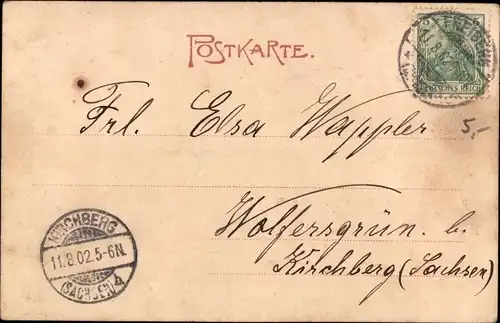 POSTKARTE.
Frl. Elsa Wappler
5,-
Wolfersgrün. b.
Kirchberg (Sachsen)
KIRCHBERG
11.8.02.5-6N.
(SACHSEN)
DEUTSCHES REICH